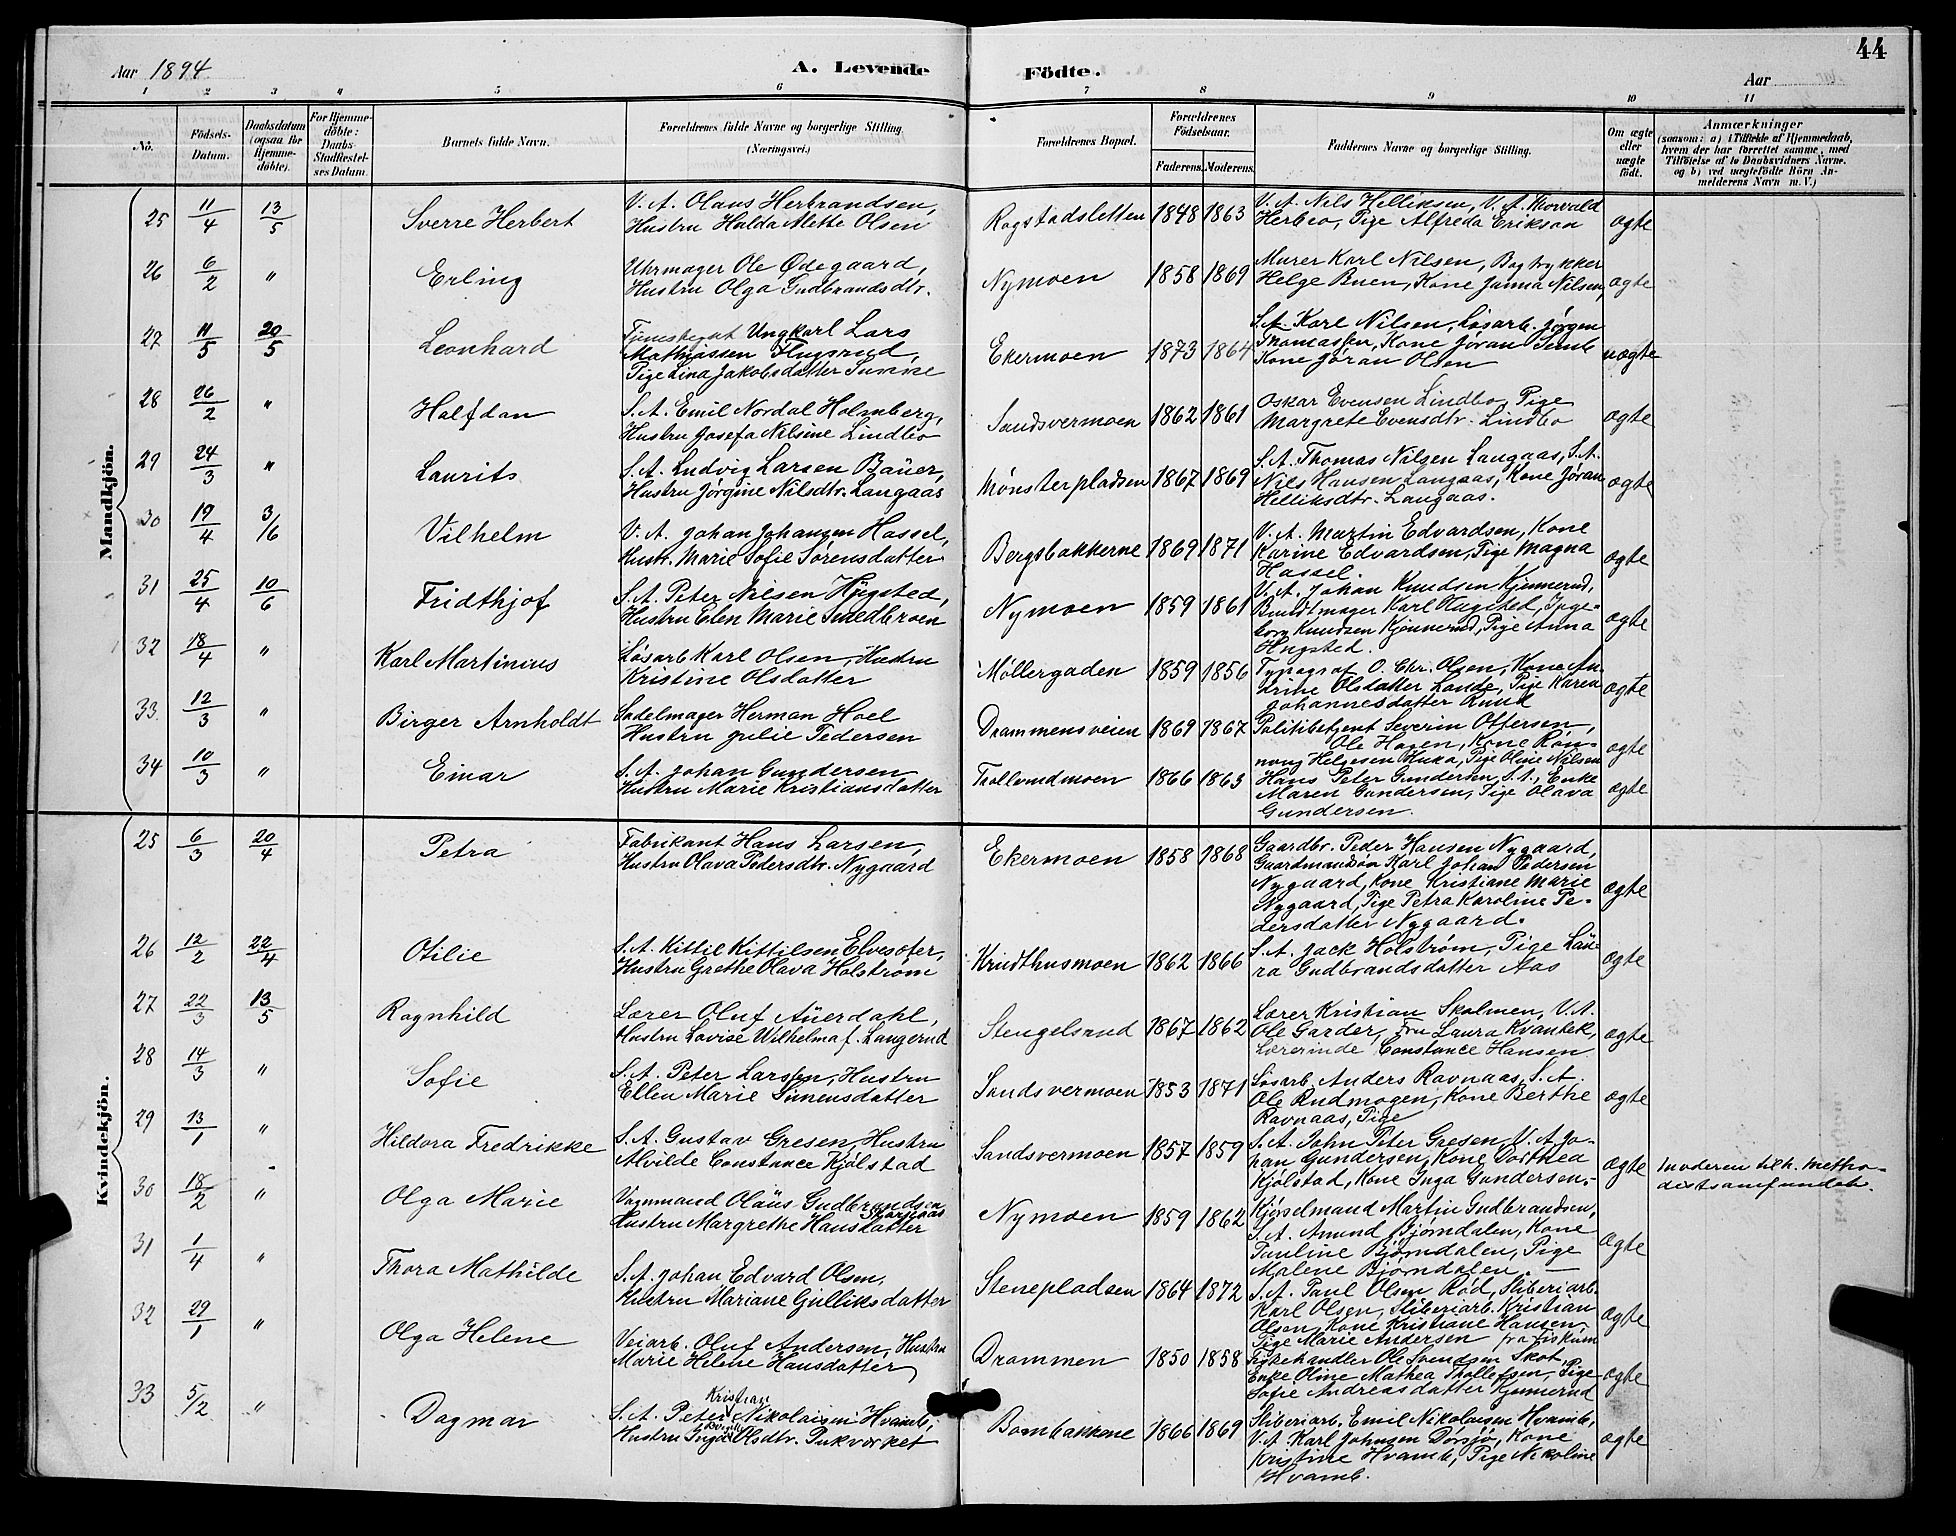 44
Aar 1894.
A. Levende Födte.
Aar
1 2 3 4 5 6 7 8 9 10 11
No.
Födsels-Datum.
Daabsdatum (ogsaa for Hjemme-döbte).
For Hjemme-döbte: Daabs-Stadfæstel-ses Datum.
Barnets fulde Navn.
Forældrenes fulde Navne og borgerlige Stilling. (Næringsvei.)
Forældrenes Bopæl.
Forældrenes Födselsaar.
Faderens. Moderens.
Faddernes Navne og borgerlige Stilling.
Om ægte eller uægte födt.
Anmærkninger
(saasom: a) i Tilfælde af Hjemmedaab,
hvem der har forrettet samme, med
Tilföielse af to Daabsvidners Navne.
og b) ved uægtefödte Börn An-
melderens Navn m. V.)
Mandkjön.
25 11/4 13/5 Sverre Herbert
V. A. Olaus Herbrandsen,
Hustru Halda Mette Olsen
Rogstadsletten 1848 1863
V. A. Nils Helliksen, V. A. Thorvald
Herbro, Pige Alfreda Erikson
ægte
26 6/2 " Erling
Uhrmager Ole Ødegaard,
Hustru Olga Gudbrandsdtr.
Nymoen 1858 1869
Murer Karl Nilsen, Bogtrykker
Helge Buen, Kone Janna Nilsen,
ægte
27 11/5 20/5 Leonhard
Ungkarl Lars
Mathiassen
Pige Lina Jakobsdatter
Ekermoen 1873 1864
S. A. Karl Nilsen, Løsarb. Jørgen
Thomassen, Kone Jøran
Kone Jøran Olsen
uægte
28 26/2 " Halfdan
S. A. Emil Nordal Holmberg,
Hustru Josefa Nilsine Lindbo
Sandsvermoen 1862 1861
Oskar Evensen Lindbo, Pige
Margrete Evensdtr. Lindbo
ægte
29 24/3 " Laurits
S. A. Ludvig Larsen Baüer,
Hustru Jørgine Nilsdtr. Langaas
Mønsterpladsen 1867 1869
S. A. Thomas Nilsen Langaas, S. A.
Nils Hansen Langaas, Kone Jøran
Helliksdtr. Langaas.
ægte
30 19/4 3/6 Vilhelm
V. A. Johan Johansen Hassel,
Hustr. Marie Sofie Sørensdatter
Bergsbakkerne 1869 1871
V. A. Martin Edvardsen, Kone
Karine Edvardsen, Pige Magna
Hassel.
ægte
31 25/4 10/6 Fridthjof
S. A. Peter Nilsen Hügsted,
Hustru Elen Marie Smedbroen
Nymoen 1859 1861
V. A. Johan Knudsen Kjennerud,
Bundtmager Karl Hugsted, Inge-
borg Knudsen Kjennerud, Pige Anna
Hugsted.
ægte
32 18/4 " Karl Martinius
Løsarb Karl Olsen, Hustru
Kristine Olsdatter
Møllergaden 1859 1856
Typograf O. Chr. Olsen, Kone An-
drine Olsdatter Lande, Pige Karen
Johannesdatter Ruud
ægte
33. 12/3 " Birger Arnholdt
Sadelmager Herman Hoel
Hustru Julie Pedersen
Drammensveien 1869 1867
Politibetjent Severin Offersen,
Ole Hagen, Kone Røn-
naug Helgesen Kuka, Pige Oline Nilsen
ægte
34 10/3 " Einar
S. A. Johan Gundersen
Hustru Marie Kristiansdatter
Tollemdmoen 1866 1863
Hans Peter Gundersen, S. A., Enke
Maren Gundersen, Pige Olava
Gundersen.
ægte
Kvindekjön.
25 6/3 20/4 Petra
Fabrikant Hans Larsen,
Hustru Olava Pedersdtr. Nygaard
Ekermoen 1858 1868
Gaardbr. Peder Hansen Nygaard,
Gaardmandsøn Karl Johan Pedersen
Nygaard, Kone Kristiane Marie
Nygaard, Pige Petra Karoline Pe-
dersdatter Nygaard.
ægte
26 12/2 22/4 Otilie
S. A. Kittil Kittilsen Elvesøter,
Hustru Grethe Olava Holstrøm
Krudthusmoen 1862 1866
S. A. Jack Holstrøm, Pige Lau-
ra Gudbrandsdatter Aas
ægte
27 22/3 13/5 Ragnhild
Lærer Oluf Aüerdahl,
Hustru Lovise Wilhelma f. Langerud
Stengelsrud 1867 1862
Lærer Kristian Skolmen, V. A.
Ole Garder, Fru Laura Kvantek,
Lærerinde Constance Hansen
ægte
28 14/3 " Sofie
S. A. Peter Larssen, Hustru
Ellen Marie Simensdatter
Sandsvermoen 1853 1871
Løsarb. Anders Ravnaas, S. A.
Ole Rudmogen, Kone Berthe
Ravnaas, Pige
ægte
29 13/1 " Hildora Fredrikke
S. A. Gustav Gresen, Hustru
Alvilde Constance Kjølstad
Sandsvermoen 1857 1859
S. A. John Peter Gresen, V. A. Jo-
han Gundersen, Kone Dorthea
Kjølstad, Kone Inga Gundersen.
ægte
Moderen tilh. Metho-
distsamfundet.
30 18/2 " Olga Marie
Vognmand Olaüs Gudbrandsen
Skarnaas
Hustru Margrethe Hansdatter
Nymoen 1859 1862
Kjørselmand Martin Gudbrandsen,
S. A. Amund Bjørndalen, Kone
Pauline Bjørndalen, Pige
Malene Bjørndalen.
ægte
31 1/4 " Thora Mathilde
S. A. Johan Edvard Olsen,
Hustru Mariane Gulliksdatter
Stenepladsen 1864 1872
S. A. Paul Olsen Rød, Sliberiarb.
Karl Olsen, Sliberiarb. Kristian
Olsen, Kone Kristiane Hansen,
Pige Marie Andersen fra Fiskum
ægte
32 29/1 " Olga Helene
Veiarb. Oluf Andersen, Hustru
Marie Helene Hansdatter,
Drammen 1850 1858
Fiskehandler Ole Svendsen Skot,
Enke Oline Mathea Thollefsen, Pige
Sofie Andreasdatter Kjennerud
ægte
33 5/2 " Dagmar
Kristian
S. A. Peter Nikolaisen Hvamb,
Hustru Inga Olsdtr. Pukværket
Bombakkene 1866 1869
Sliberiarb. Emil Nikolaisen Hvamb,
V. A. Karl Johnsen Dørsjø, Kone
Kristine Hvamb, Pige Nikoline
Hvamb.
ægte